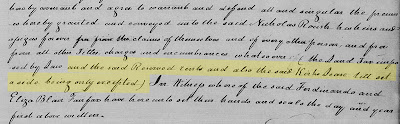 hereby covenant and agree to warrant and defend all and singular the premises
hereby granted and conveyed unto the said Nicholas Roush his heirs and
assigns forever from the claims of themselves and of every other person and free
from all other Titles charges and incumbrances whatsoever (the Land Tax
sed by Law and the said Reserved rents and also the said Kirks Lease till set
aside being only excepted) In Witness whereof the said Ferdinando and
Eliza Blair Fairfax have hereunto set their hands and seals the day and year
first above written